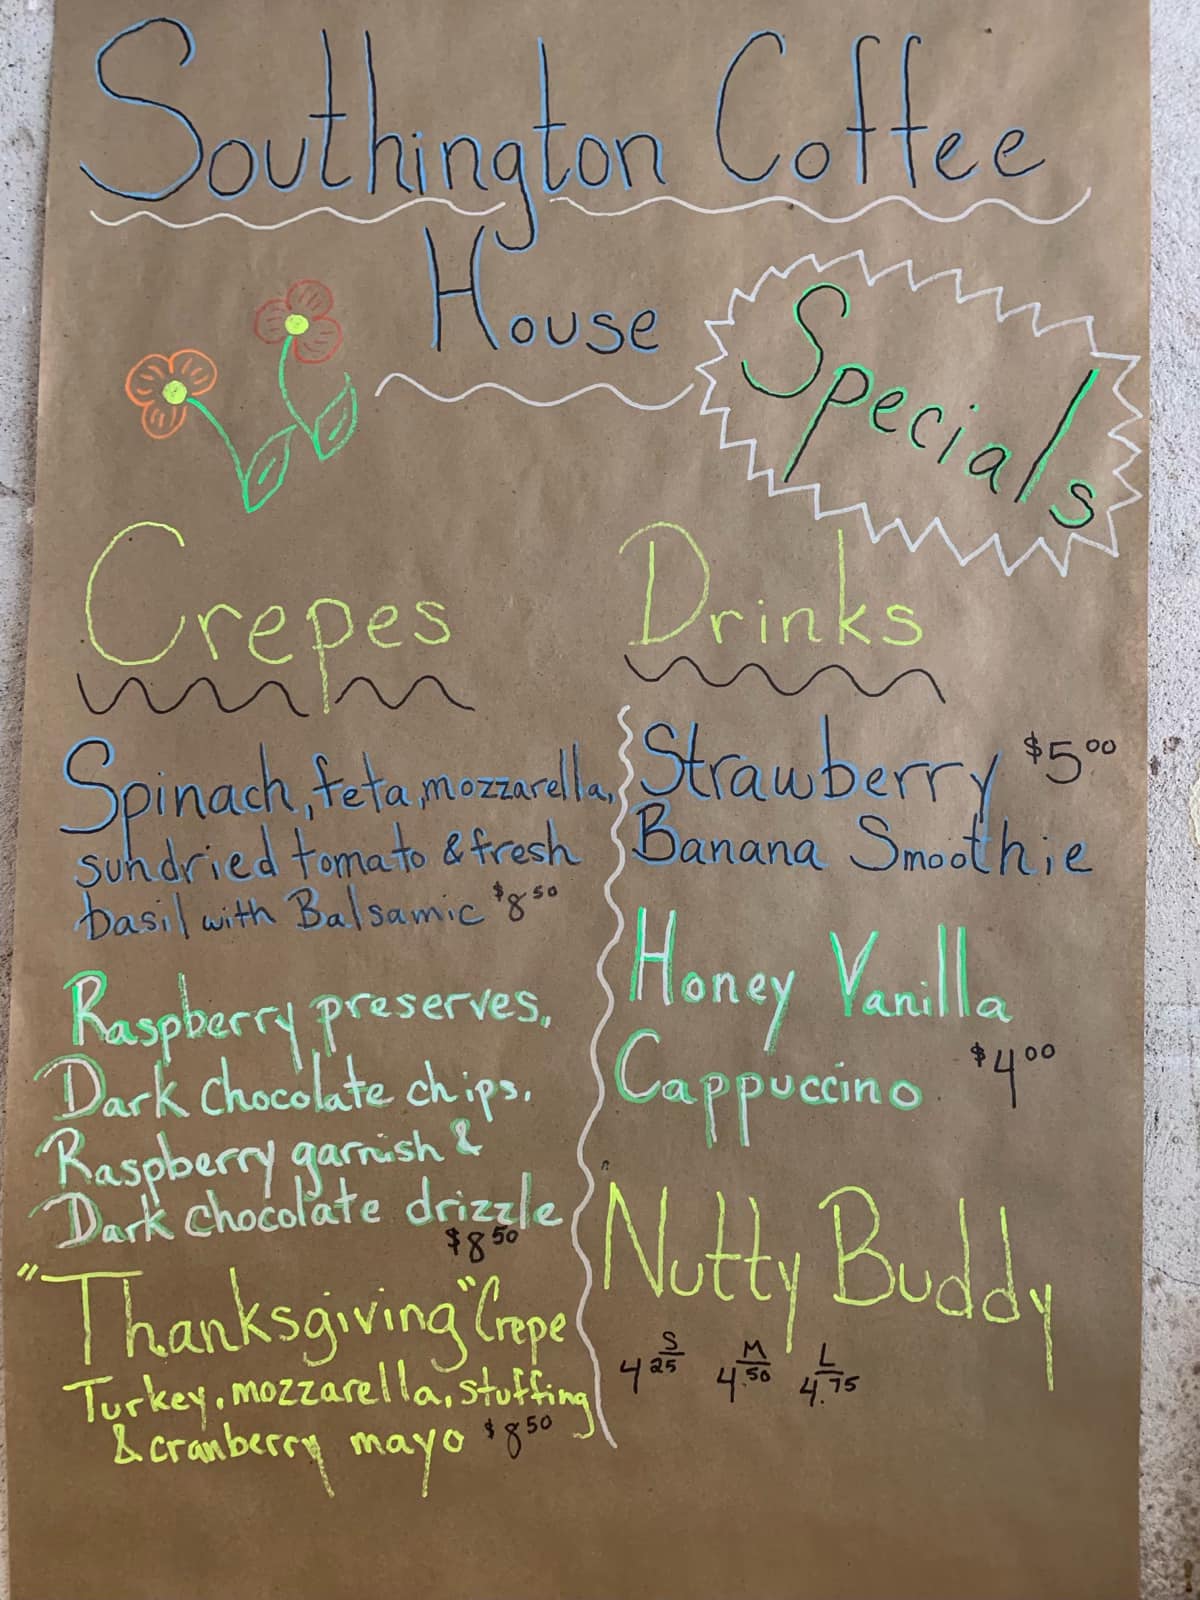 Southington Coffee
House
Specials
Crepes
Spinach, feta, mozzarella,
sundried tomato & fresh
basil with Balsamic $8.50
Raspberry preserves,
Dark chocolate chips,
Raspberry garnish &
Dark chocolate drizzle
$8.50
"Thanksgiving" Crepe
Turkey, mozzarella, stuffing
& cranberry mayo $8.50
Drinks
Strawberry $5.00
Banana Smoothie
Honey Vanilla
Cappuccino $4.00
Nutty Buddy
S M L
4.25 4.50 4.75